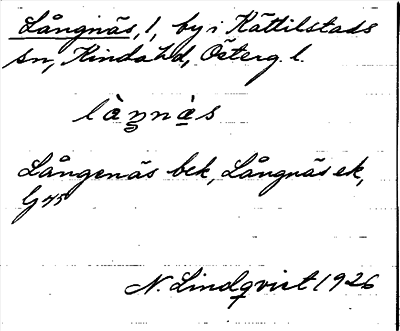 Långnäs, 1, by i Kättilstads
sn, Kinda hd, Österg. l.
làŋnà̤s
Långenäs bek, Långnäs ek,
G 45
N. Lindqvist 1926